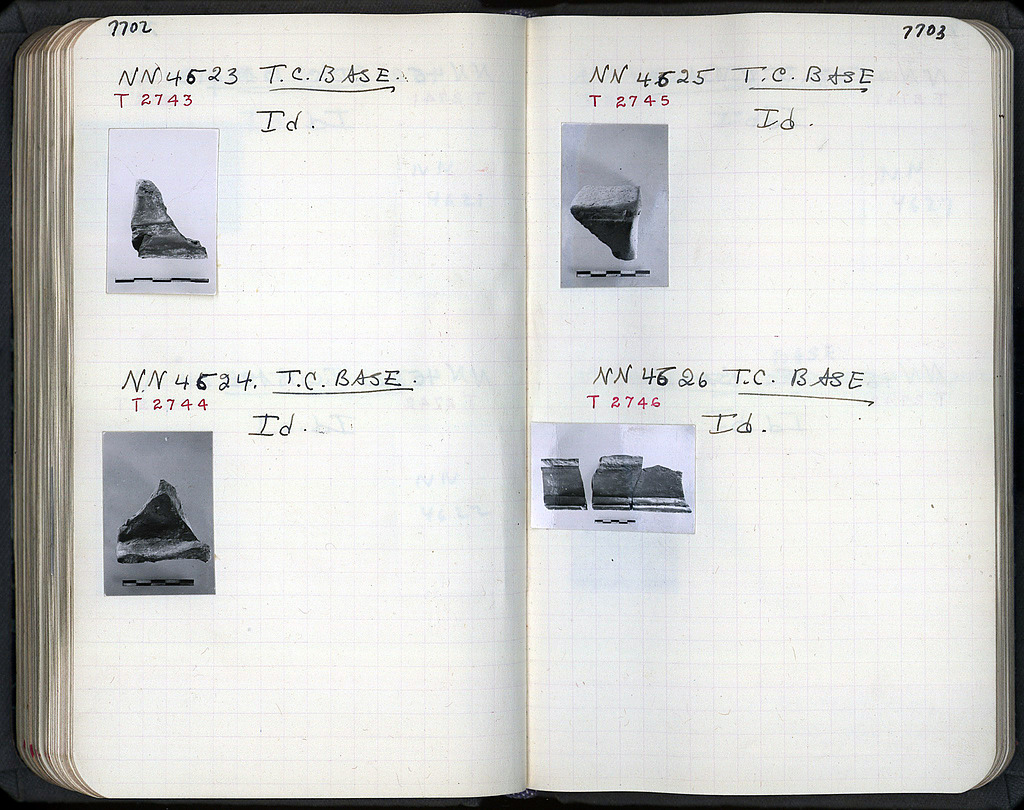 7702
NN 4523 T.C. BASE.
T 2743
Id.
NN 4524. T.C. BASE.
T 2744
Id.
7703
NN 4525 T.C. BASE
T 2745
Id.
NN 4526 T.C. BASE
T 2746
Id.